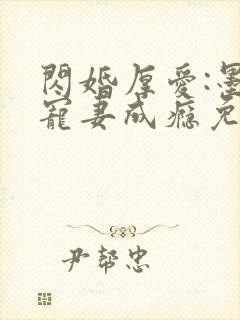 閃婚厚愛:墨
寵妻成癮免
尹幫忠